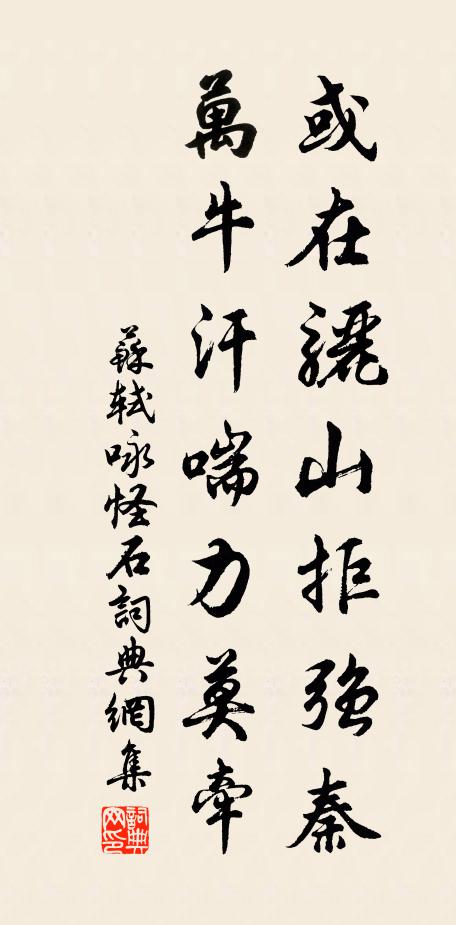 或在驪山拒強秦
萬牛汗喘力莫牽
蘇軾咏怪石詞典網集
詞典
网印